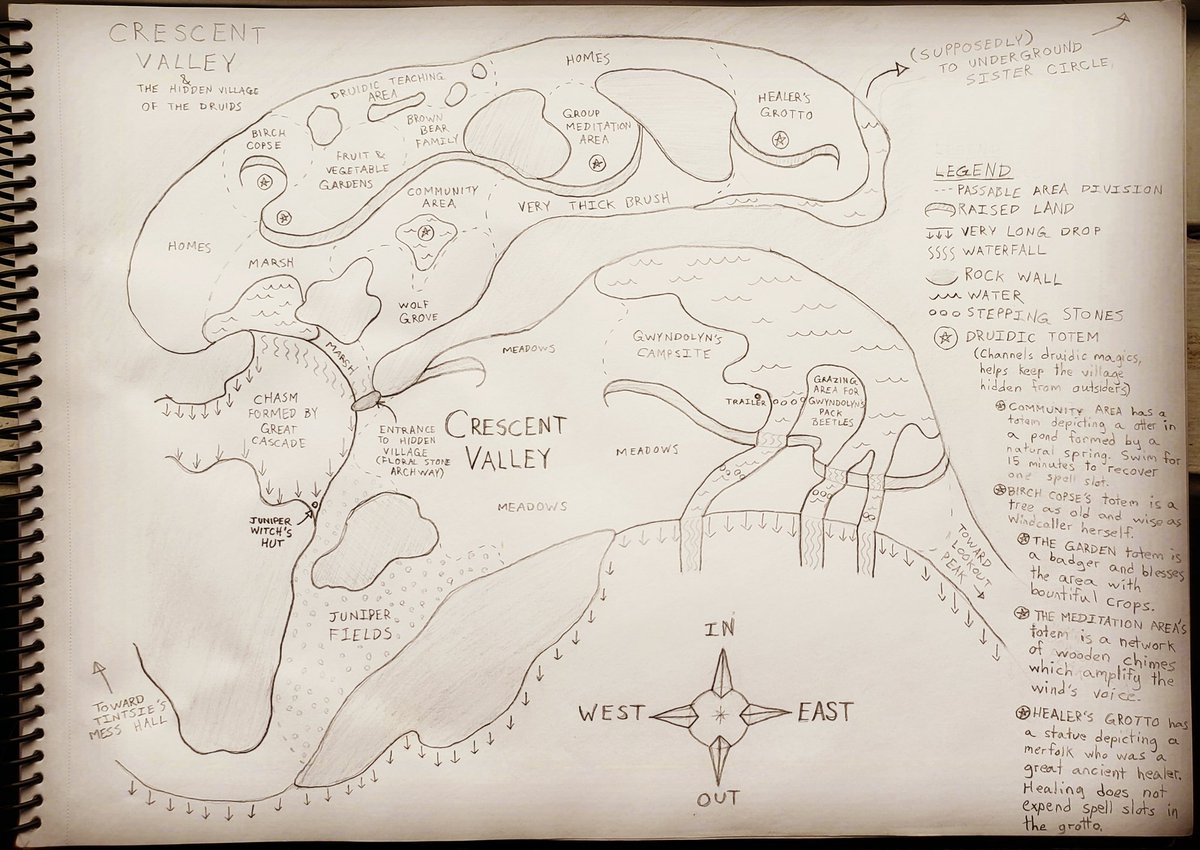 CRESCENT
VALLEY
&
THE HIDDEN VILLAGE
OF THE DRUIDS
HOMES
DRUIDIC TEACHING
AREA
BROWN
BEAR
FAMILY
GROUP
MEDITATION
AREA
HEALER'S
GROTTO
(SUPPOSEDLY)
TO UNDERGROUND
SISTER CIRCLE
BIRCH
COPSE
FRUIT &
VEGETABLE
GARDENS
COMMUNITY
AREA
VERY THICK BRUSH
HOMES
MARSH
WOLF
GROVE
MARSH
CHASM
FORMED BY
GREAT
CASCADE
ENTRANCE
TO HIDDEN
VILLAGE
(FLORAL STONE
ARCHWAY)
MEADOWS
CRESCENT
VALLEY
MEADOWS
MEADOWS
GWYNDOLYN'S
CAMPSITE
TRAILER
GRAZING
AREA FOR
GWYNDOLYN'S
PACK
BEETLES
JUNIPER
WITCH'S
HUT
JUNIPER
FIELDS
TOWARD
TINTSIE'S
MESS HALL
TOWARD
LOOKOUT
PEAK
IN
WEST
EAST
OUT
LEGEND
PASSABLE AREA DIVISION
RAISED LAND
VERY LONG DROP
WATERFALL
ROCK WALL
WATER
STEPPING STONES
DRUIDIC TOTEM
(Channels druidic magics,
helps keep the village
hidden from outsiders)
COMMUNITY AREA has a
totem depicting a otter in
a pond formed by a
natural spring. Swim for
15 minutes to recover
one spell slot.
BIRCH COPSE'S totem is a
tree as old and wise as
Windcaller herself.
THE GARDEN totem is
a badger and blesses
the area with
bountiful crops.
THE MEDITATION AREA'S
totem is a network
of wooden chimes
which amplify the
wind's voice.
HEALER'S GROTTO has
a statue depicting a
merfolk who was a
great ancient healer.
Healing does not
expend spell slots in
the grotto.